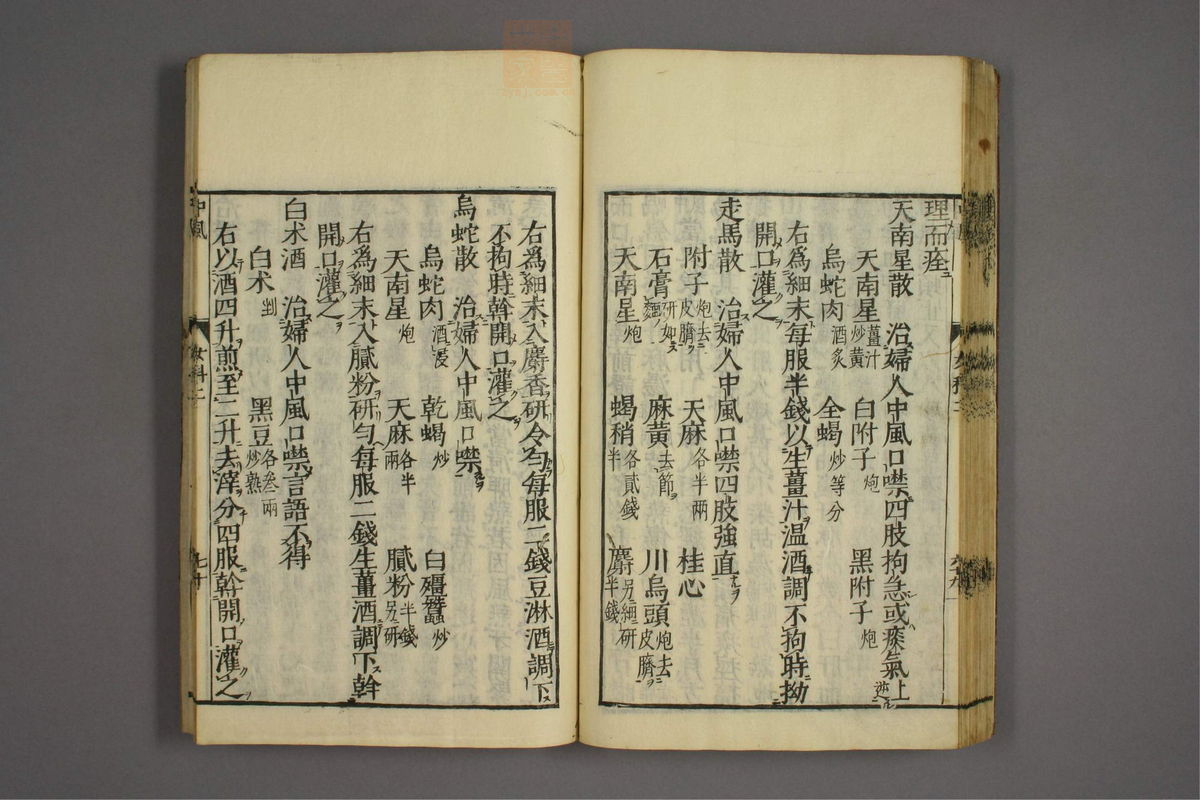 理而痊
天南星散　治婦人中風口噤四肢拘急或痰氣上逆
天南星薑汁炒黃　白附子炮　黑附子炮
烏蛇肉酒炙　全蝎炒等分
右爲細末每服半錢以生薑汁温酒調不拘時拗
開口灌之
走馬散　治婦人中風口噤四肢強直
附子炮去皮臍　天麻各半兩　桂心
石膏研如麵　麻黃去節　川烏頭炮去皮臍
天南星炮　蝎稍各貳錢半　麝半錢另細研
右爲細末入麝香研令勻每服二錢豆淋酒調下
不拘時斡開口灌之
烏蛇散　治婦人中風口噤
烏蛇肉酒浸　乾蝎炒　白殭蠶炒
天南星炮　天麻各半兩　膩粉半錢另研
右爲細末入膩粉研勻每服二錢生薑酒調下斡
開口灌之
白朮酒　治婦人中風口噤言語不得
白朮剉　黑豆各叁兩炒熟
右以酒四升煎至二升去滓分四服斡開口灌之
中風
女科二
七十